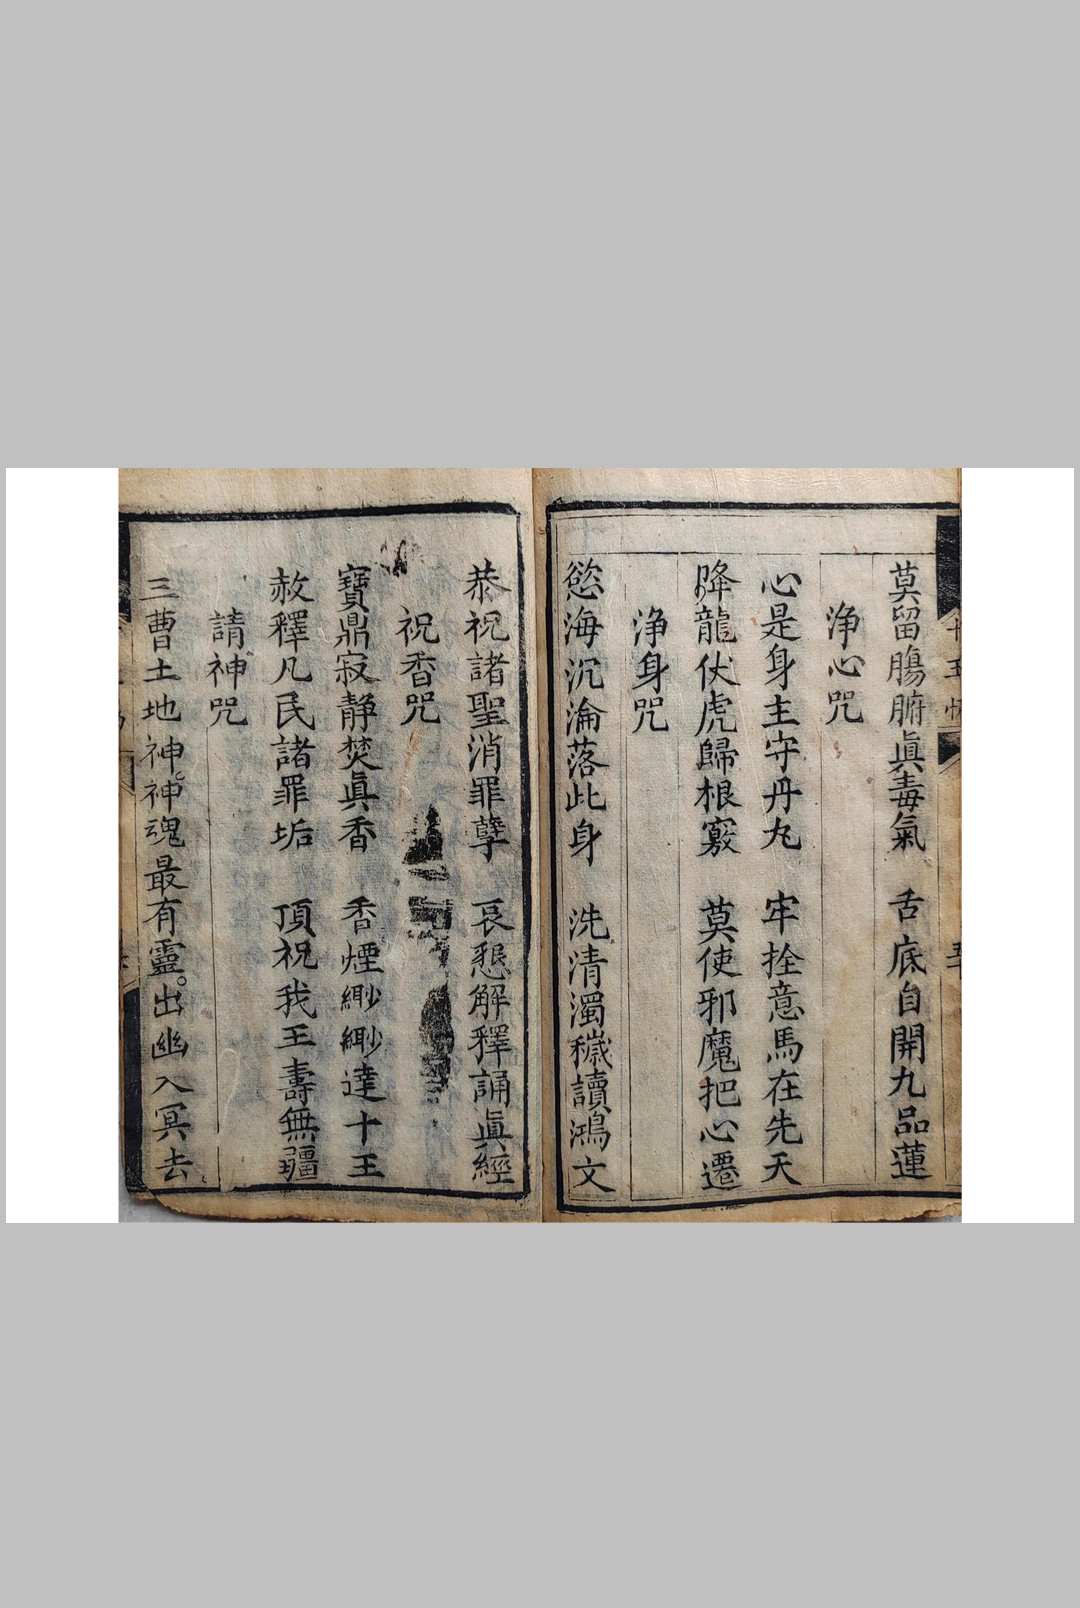 莫留膓腑眞毒氣　舌底自開九品蓮
淨心咒
心是身主守丹丸　牢拴意馬在先天
降龍伏虎歸根竅　莫使邪魔把心遷
淨身咒
慾海沉淪落此身　洗清濁穢讀鴻文
恭祝諸聖消罪孽　哀懇解釋誦眞經
祝香咒
寶鼎寂靜焚眞香　香煙緲緲達十王
赦釋凡民諸罪垢　頂祝我王壽無疆
請神咒
三曹土地神神魂最有靈。出幽入冥去